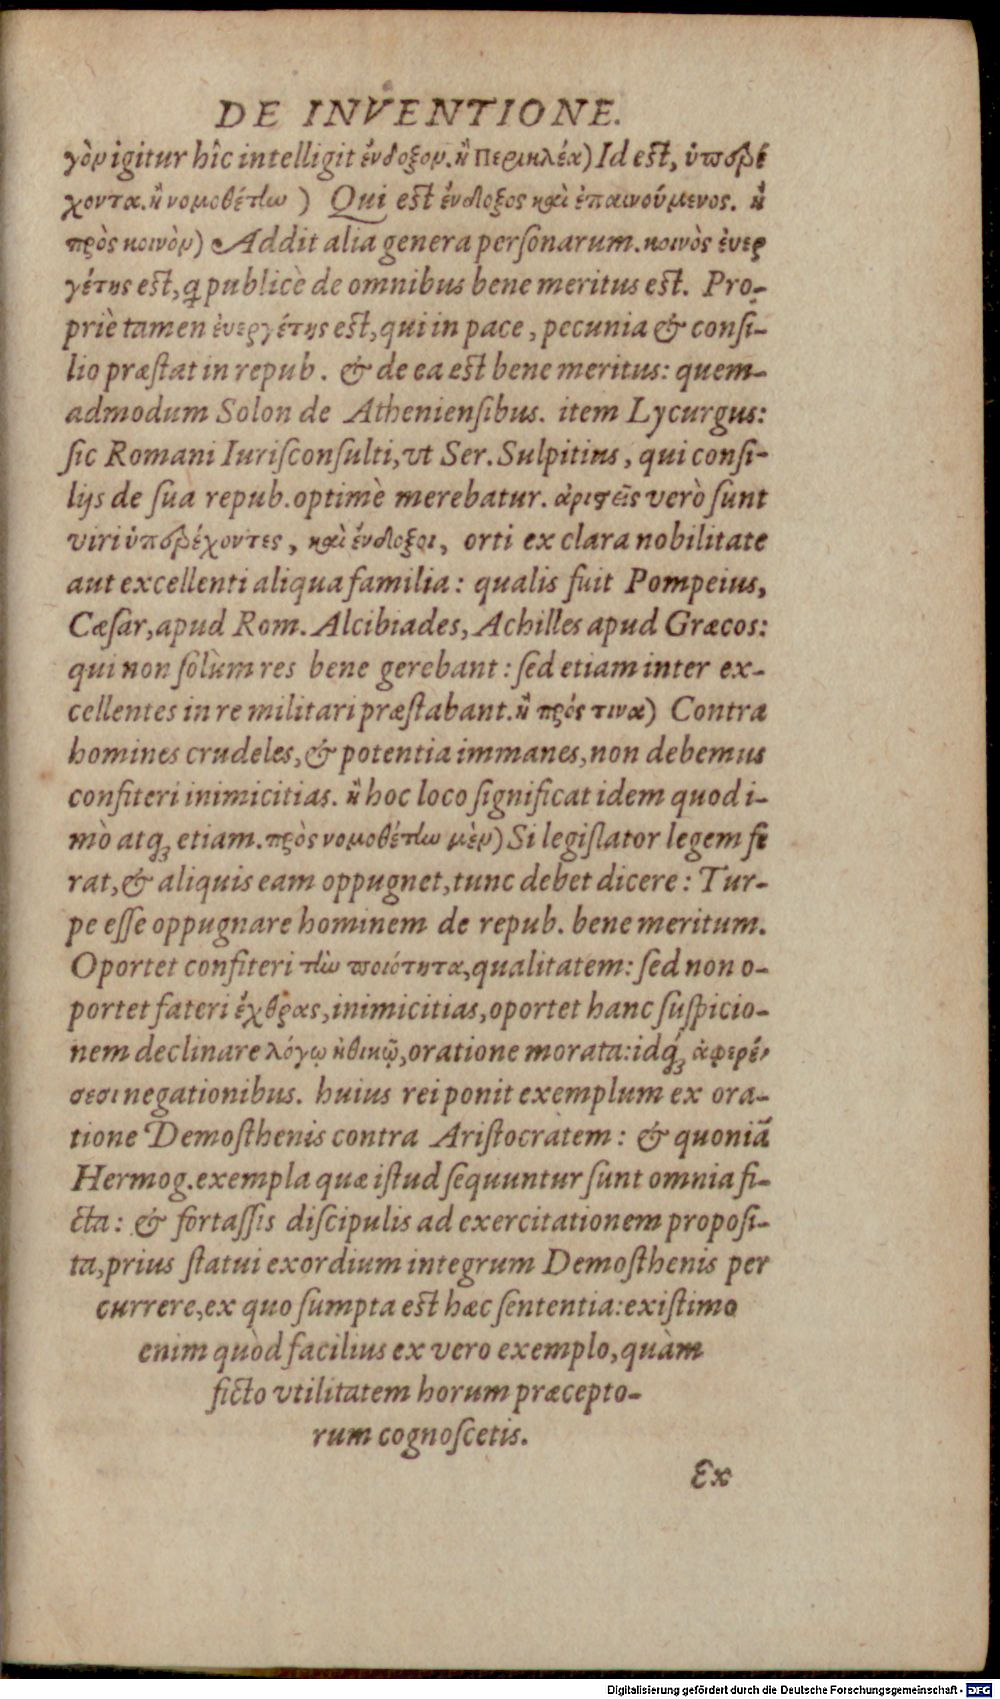 DE INVENTIONE.
γὸν igitur hîc intelligit ἔνδοξον. ἢ Περικλέα) Id est, ὑπερέ
χοντα. ἢ νομοθέτην ) Qui est ἔνδοξος καὶ ἐπαινούμενος. ἢ
πρὸς κοινὸν) Addit alia genera personarum. κοινὸς ἐυερ
γέτης est, q publicè de omnibus bene meritus est. Pro-
priè tamen ἐυεργέτης est, qui in pace, pecunia & consi-
lio præstat in repub. & de ea est bene meritus: quem-
admodum Solon de Atheniensibus. item Lycurgus:
sic Romani Iurisconsulti, vt Ser. Sulpitius, qui consi-
lijs de sua repub. optimè merebatur. ἀριστεῖς verò sunt
viri ὑπερέχοντες, καὶ ἔνδοξοι, orti ex clara nobilitate
aut excellenti aliqua familia: qualis fuit Pompeius,
Cæsar, apud Rom. Alcibiades, Achilles apud Græcos:
qui non solùm res bene gerebant: sed etiam inter ex-
cellentes in re militari præstabant. ἢ πρός τινα) Contra
homines crudeles, & potentia immanes, non debemus
confiteri inimicitias. ἢ hoc loco significat idem quod i-
mò atq; etiam. πρὸς νομοθέτην μὲν) Si legislator legem fe
rat, & aliquis eam oppugnet, tunc debet dicere: Tur-
pe esse oppugnare hominem de repub. bene meritum.
Oportet confiteri τὴν ποιότητα, qualitatem: sed non o-
portet fateri ἔχθρας, inimicitias, oportet hanc suspicio-
nem declinare λόγῳ ἠθικῷ, oratione morata: idq́; ἀφερέ-
σεσι negationibus. huius rei ponit exemplum ex ora-
tione Demosthenis contra Aristocratem: & quoniã
Hermog. exempla quæ istud sequuntur sunt omnia fi-
cta: & fortassis discipulis ad exercitationem proposi-
ta, prius statui exordium integrum Demosthenis per
currere, ex quo sumpta est hæc sententia: existimo
enim quòd facilius ex vero exemplo, quàm
ficto vtilitatem horum præcepto-
rum cognoscetis.
Ex
Digitalisierung gefördert durch die Deutsche Forschungsgemeinschaft - DFG